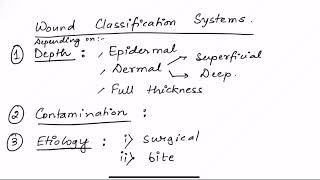 Wound Classification Systems.
Depending on:-
① Depth : , Epidermal
, Dermal → Superficial
→ Deep.
, Full thickness
② Contamination :
③ Etiology : i) Surgical
ii) bite